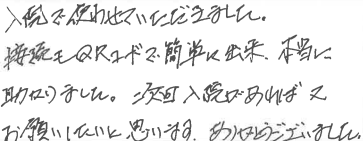 入院で使わせていただきました。
接続もQRコードで簡単に出来、本当に
助かりました。次回入院があれば又
お願いしたいと思います。ありがとうございました。